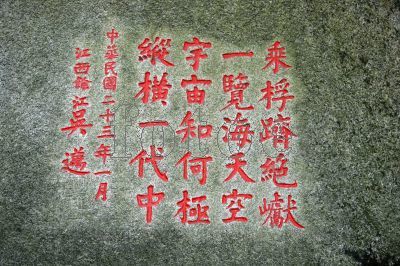 乘桴躋絕巘
一覽海天空
宇宙知何極
縱橫一代中
中華民國二十三年一月
江西餘江吳邁